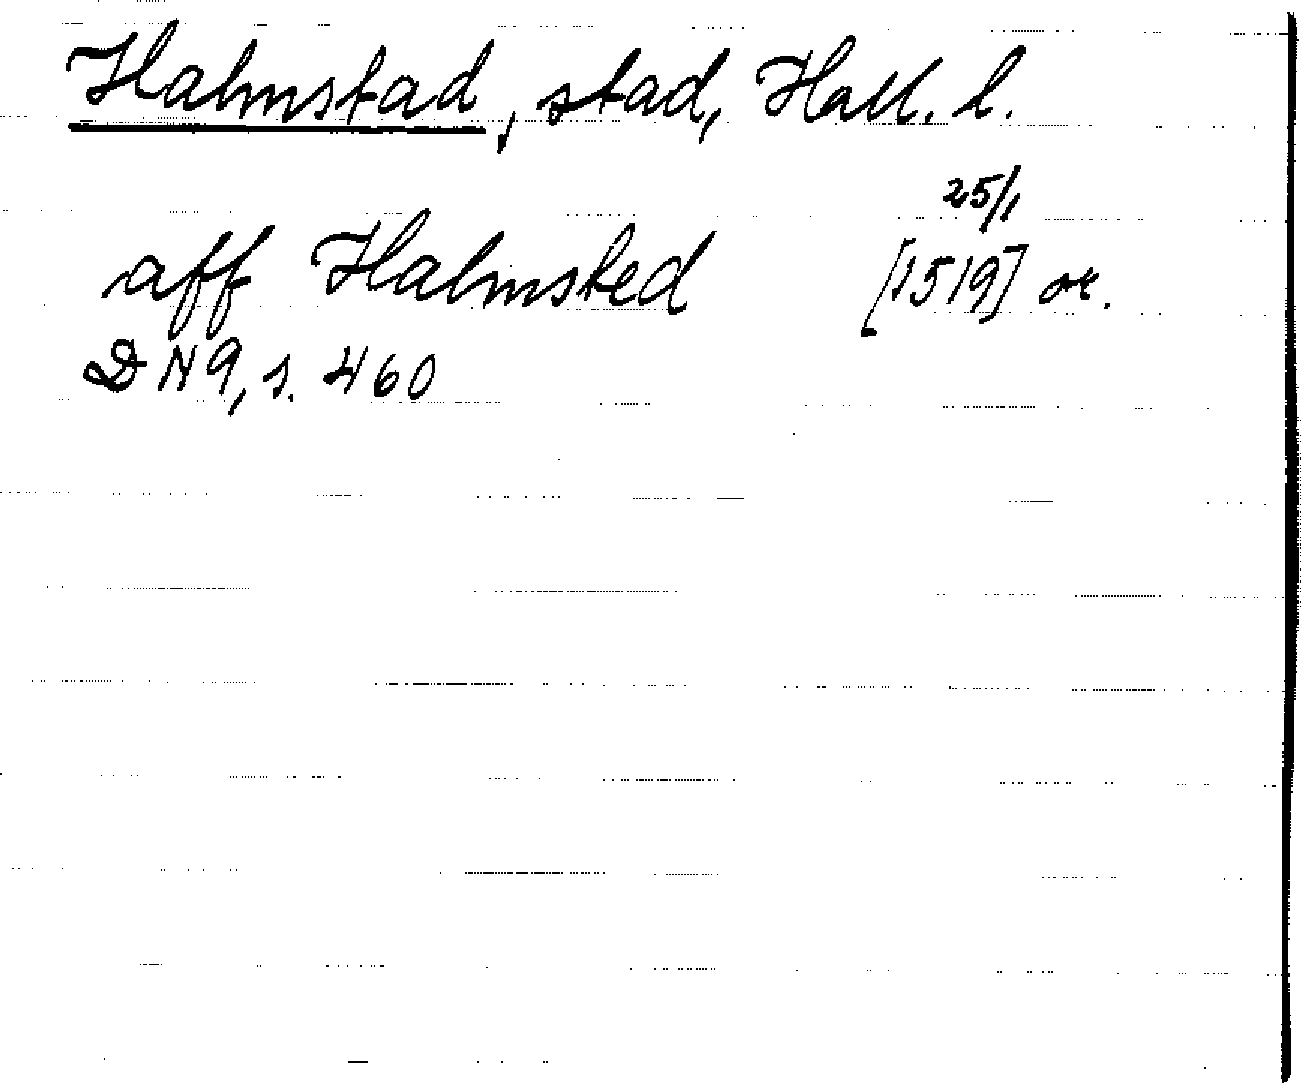 Halmstad, stad, Hall. l.
25/1
aff Halmsted [1519] or.
DN 9, s. 460